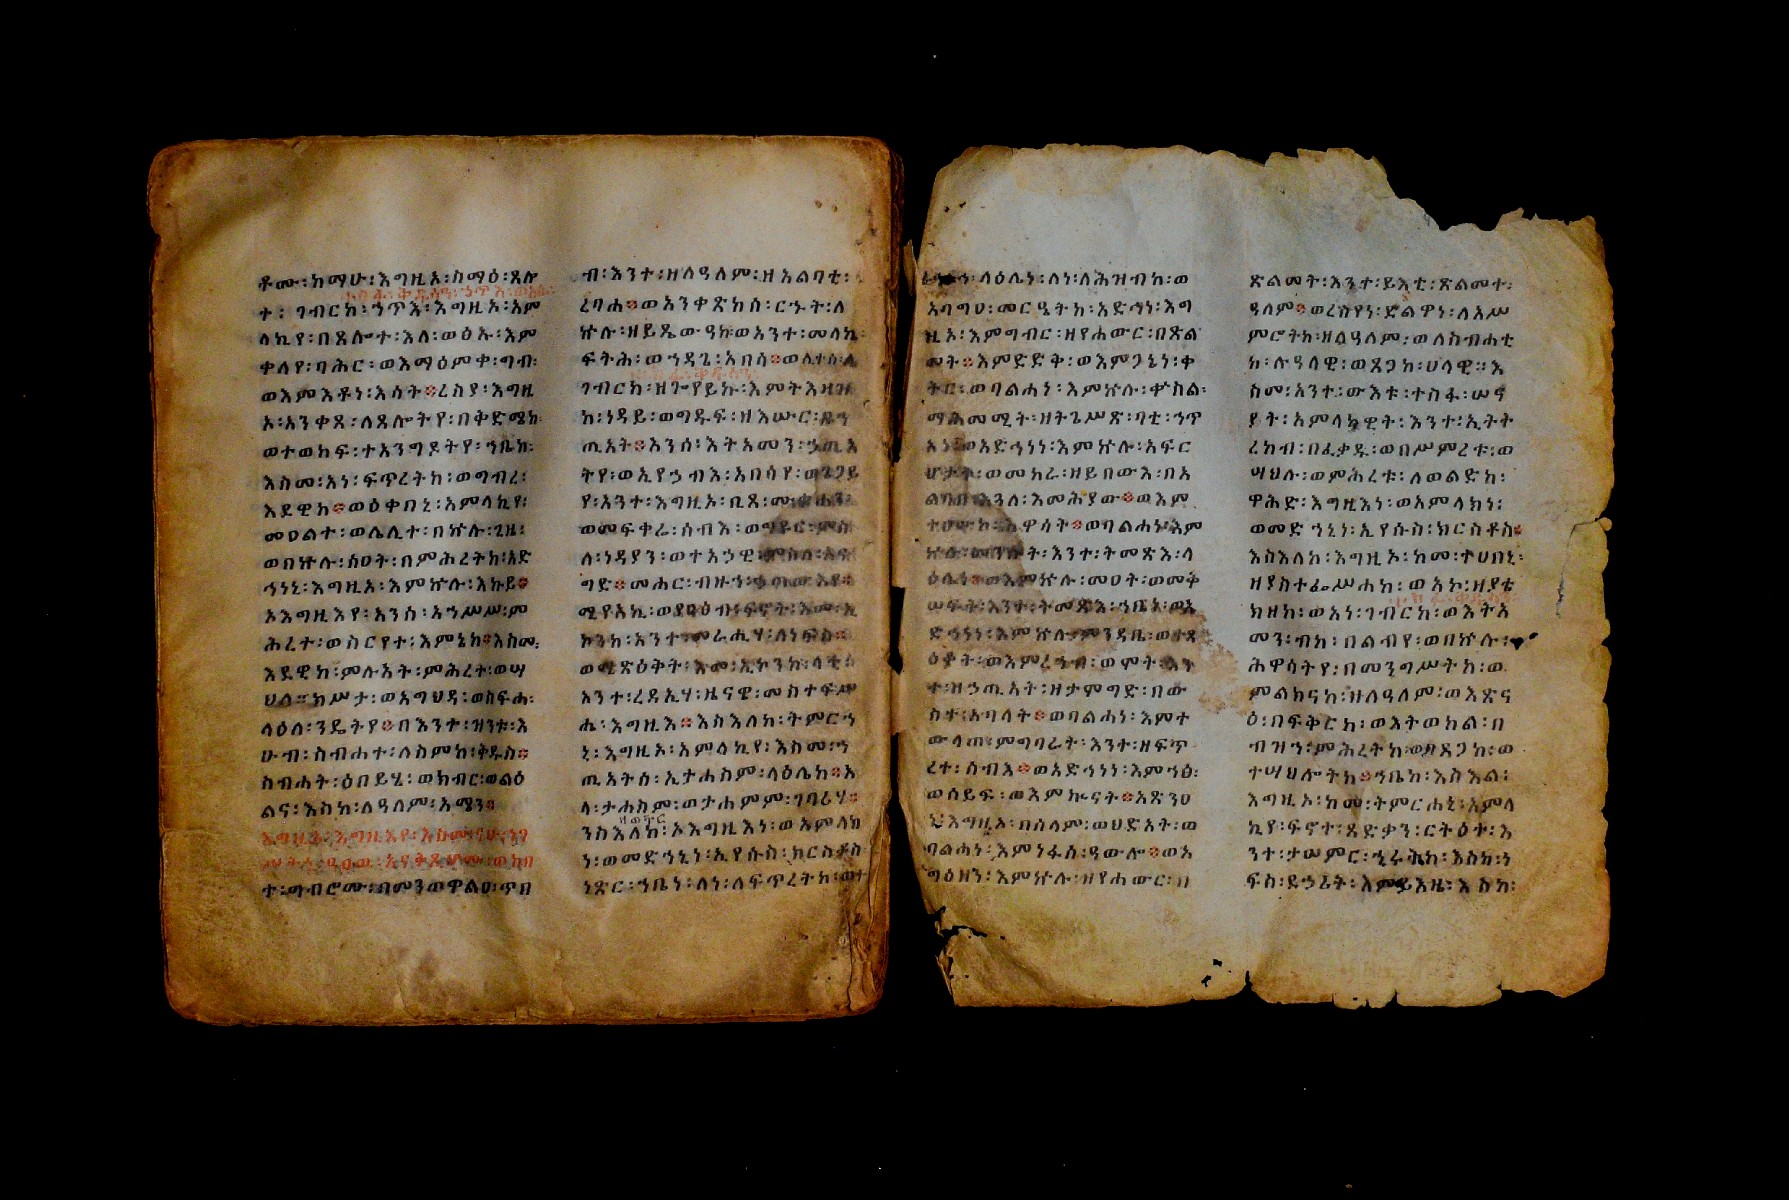 ቶሙ፡ከማሁ፡እግዚአ፡ስማዕ፡ጸሎ
ት፡ገብርከ፡ኃጥእ፡እግዚኦ፡አም
ላኪየ፡በጸሎተ፡እለ፡ወዕኡ፡እም
ቀላየ፡ባሕር፡ወእማዕምቀ፡ግብ፡
ወእምእቶነ፡እሳት፨ረስያ፡እግዚ
አ፡አንቀጸ፡ለጸሎትየ፡በቅድሜከ
ወተወከፍ፡ተአንግዶትየ፡ኀቤከ፡
እስመ፡አነ፡ፍጥረትከ፡ወግብረ፡
እደዊከ፨ወዕቀበኒ፡አምላኪየ፡
መዐልተ፡ወሌሊተ፡በኵሉ፡ጊዜ፡
ወበኵሉ፡ሰዐት፡በምሕረትከ፡አድ
ኅነኒ፡እግዚአ፡እምኵሉ፡እኩይ፨
ኦእግዚእየ፡አንሰ፡አኀሥሥ፡ም
ሕረተ፡ወስርየተ፡እምኔከ፨እስመ፡
እደዊከ፡ምሉአት፡ምሕረተ፡ወሣ
ህለ።ከሥታ፡ወአግህዳ፡ወስፍሐ፡
ላዕለ፡ንዴትየ፨በእንተ፡ዝንቱ፡እ
ሁብ፡ስብሐተ፡ለስምከ፡ቅዱስ፨
ስብሐት፡ዕበይሂ፡ወክብር፡ወልዕ
ልና፡እስከ፡ለዓለም፡አሜን፨
ተ፡ግብሮሙ፡በመንወዋልዐ፡ጥበ
ብ፡እንተ፡ዘለዓለም፡ዘአልባቲ፡
ረባሐ፨ወአንቀጽከሰ፡ርኁት፡ለ
ኵሉ፡ዘይጼውዓከ፡ወአንተ፡መላኬ
ፍትሕ፡ወኀዳጊ፡አበሳ፨
ገብርከ፡ዘጐየይኩ፡እምትእዛዝ
ከ፡ነዳይ፡ወግዱፍ፡ዘእሡር፡በኃ
ጢአት፨እንሰ፡ኢትአመን፡ኃጢአ
ትየ፡ወኢየኃብእ፡አበሳየ፡ወጌጋይ
የ፡አንተ፡እግዚኦ፡ቢጸ፡
ወመፍቀሬ፡ሰብእ፡
ለ፡ነዳያን፡ወተአኃዊ፡
ግድ፨መሐር፡ብዙኀ፡
ኮንከ፡አንተ፡መራሒሃ፡ለነፍስ፨
ወሜጽዕቅት፡እመ፡ኢኮንከ፡ላቲ፡
አንተ፡ረዳኢሃ፡ዜናዊ፡መስተፍሥ
ሔ፡እግዚእ፨እስእለከ፡ትምርኀ
ኒ፡እግዚኦ፡አምላኪየ፡እስመ፡ኀ
ጢአትሰ፡ኢታሐስም፡ላዕሌከ፨አ
ላ፡ታሐስም፡ወታሐምም፡ገባሪሃ፨
ዘወትር
ንስእለከ፡ኦእግዚእነ፡ወአምላክ
ነ፡ወመድኀኒነ፡ኢየሱስ፡ክርስቶስ
ነጽር፡ኀቤነ፡ለነ፡ለፍጥረትከ፡
ላዕሌነ፡ለነ፡ለሕዝብከ፡ወ
አባግዐ፡መርዔትከ፡አድኅነ፡እግ
ዚኦ፡እምግብር፡ዘየሐውር፡በጽል
መት፨እምድድቅ፡ወእምጋኔነ፡ቀ
ትር፡ወባልሐነ፡እምኵሉ፡ቍስል፡
ማሕመሚት፡ዘትጌሥጽ፡ባቲ፡ኃጥ
ኣነ፨ወአድኅነነ፡እምኵሉ፡አፍር
ሆታት፡ወመከራ፡ዘይበውእ፡በአ
ልባበ፡እጓለ፡እመሕያው፨ወእም
ወባልሐነ፡እም
ት፡እንተ፡ትመጽእ፡ላ
ዕሌነ፨ወእምኵሉ፡መዐት፡ወመቅ
ሠፍት፡እንተ፡ትመጽእ፡ኀቤነ፡ወአ
ድኅነነ፡እምኵሉ፡ምንዳቤ፡
ዕቶት፡ወእምረኀብ፡ወሞት፡እን
ተ፡ዝኃጢአት፡ዘታምግድ፡በው
ስተ፡አባላት፨ወባልሐነ፡እምተ
ውላጠ፡ምግባራት፡እንተ፡ዘፍጥ
ረተ፡ሰብእ፨ወአድኅነነ፡እምኀፅ
ወሰይፍ፡ወእምኵናት፨አጽንዐ
ነ፡እግዚኦ፡በሰላም፡ወህድአት፡ወ
ባልሐነ፡እምነፋሰ፡ዓውሎ፨ወአ
ግዕዘነ፡እምኵሉ፡ዘየሐውር፡በ
ጽልመት፡እንተ፡ይእቲ፡ጽልመተ፡
ዓለም፨ወረሱየነ፡ድልዋነ፡ለአሥ
ምሮትከ፡ዘለዓለም፡ወለስብሐቲ
ከ፡ሉዓላዊ፡ወጸጋከ፡ሀላዊ።እ
ስመ፡አንተ፡ውእቱ፡ተስፋ፡ሠና
ያት፡አምላካዊት፡እንተ፡ኢትት
ረከብ፡በፈቃዱ፡ወበሥምረቱ፡ወ
ሣህሉ፡ወምሕረቱ፡ለወልድከ፡
ዋሕድ፡እግዚእነ፡ወአምላክነ፡
ወመድኀኒነ፡ኢየሱስ፡ክርስቶስ፨
እስእለከ፡እግዚኦ፡ከመ፡ተሀበኒ፡
ዘያስተፌሥሐከ፡ወአኮ፡ዘያቴ
ክዘከ፡ወአነ፡ገብርከ፡ወእትአ
መን፡ብከ፡በልብየ፡ወበኵሉ፡
ሕዋሳትየ፡በመንግሥትከ፡ወ
ምልክናከ፡ዘለዓለም፡ወእጽና
ዕ፡በፍቅርከ፡ወእትወከል፡በ
ብዝኀ፡ምሕረትከ፡ወበጸጋከ፡ወ
ተሣህሎትከ፨ኀቤከ፡እስእል፡
እግዚኦ፡ከመ፡ትምርሐኒ፡አምላ
ኪየ፡ፍኖተ፡ጻድቃን፡ርትዕተ፡እ
ንተ፡ታሠምር፡ኂሩትከ፡እስከ፡ነ
ፍስ፡ደኃሪት፡እምይእዜ፡እስከ፡